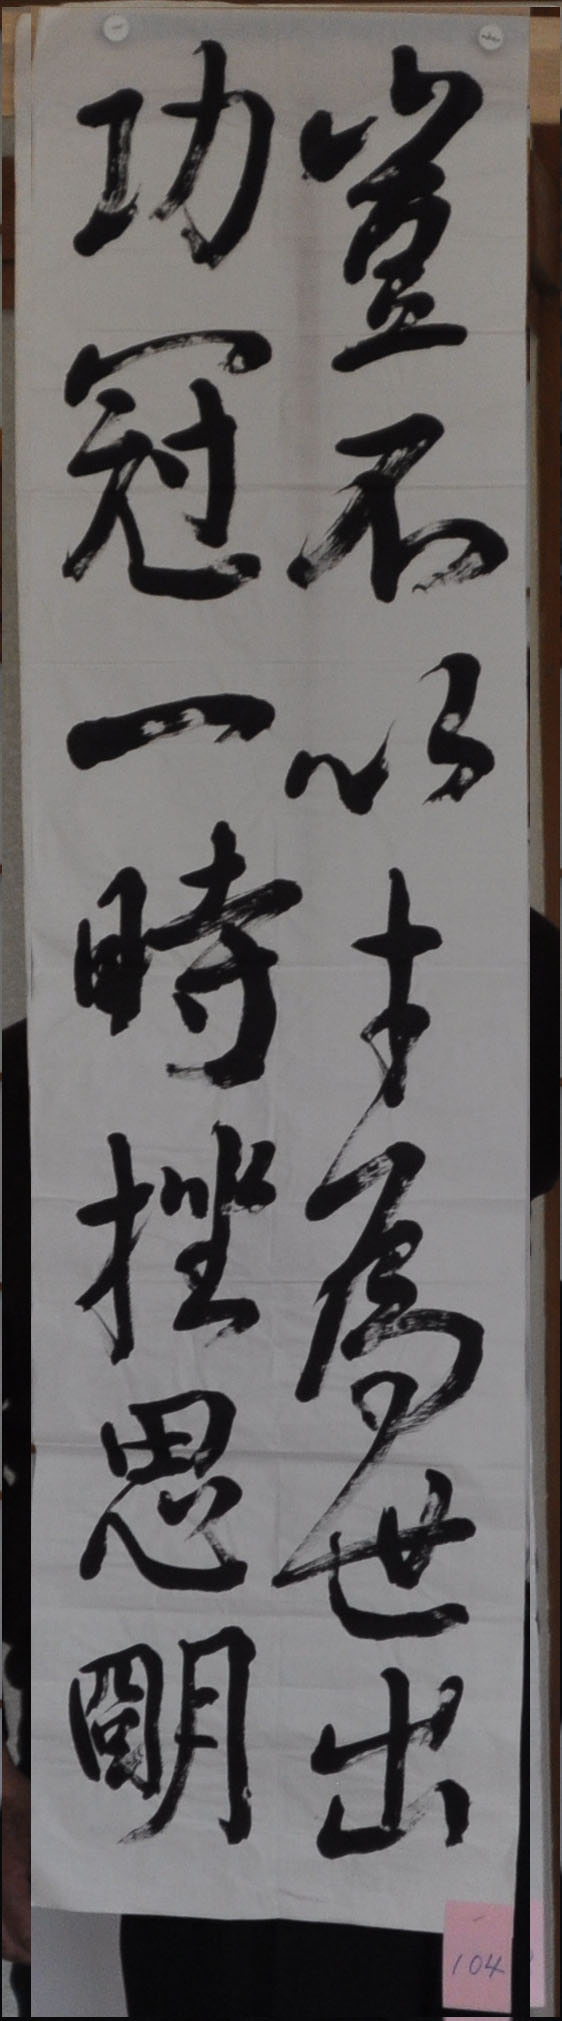 豈不以才為世出
功冠一時挫思明
104